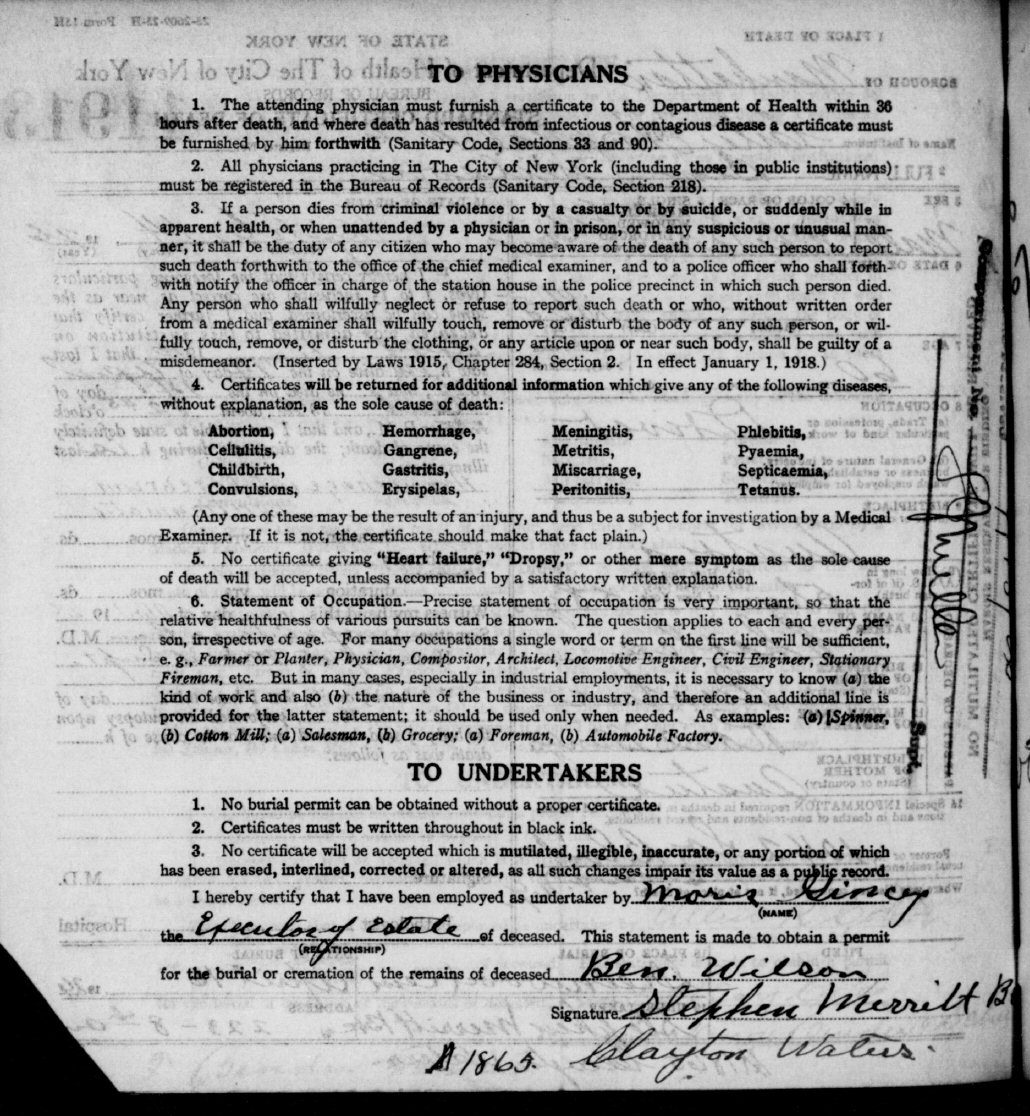 TO PHYSICIANS
1. The attending physician must furnish a certificate to the Department of Health within 36
hours after death, and where death has resulted from infectious or contagious disease a certificate must
be furnished by him forthwith (Sanitary Code, Sections 33 and 90).
2. All physicians practicing in The City of New York (including those in public institutions)
must be registered in the Bureau of Records (Sanitary Code, Section 218).
3. If a person dies from criminal violence or by a casualty or by suicide, or suddenly while in
apparent health, or when unattended by a physician or in prison, or in any suspicious or unusual man-
ner, it shall be the duty of any citizen who may become aware of the death of any such person to report
such death forthwith to the office of the chief medical examiner, and to a police officer who shall forth-
with notify the officer in charge of the station house in the police precinct in which such person died.
Any person who shall wilfully neglect or refuse to report such death or who, without written order
from a medical examiner shall wilfully touch, remove or disturb the body of any such person, or wil-
fully touch, remove, or disturb the clothing, or any article upon or near such body, shall be guilty of a
misdemeanor. (Inserted by Laws 1915, Chapter 284, Section 2. In effect January 1, 1918.)
4. Certificates will be returned for additional information which give any of the following diseases,
without explanation, as the sole cause of death:
Abortion, Hemorrhage, Meningitis, Phlebitis,
Cellulitis, Gangrene, Metritis, Pyaemia,
Childbirth, Gastritis, Miscarriage, Septicaemia,
Convulsions, Erysipelas, Peritonitis, Tetanus.
(Any one of these may be the result of an injury, and thus be a subject for investigation by a Medical
Examiner. If it is not, the certificate should make that fact plain.)
5. No certificate giving "Heart failure," "Dropsy," or other mere symptom as the sole cause
of death will be accepted, unless accompanied by a satisfactory written explanation.
6. Statement of Occupation.—Precise statement of occupation is very important, so that the
relative healthfulness of various pursuits can be known. The question applies to each and every per-
son, irrespective of age. For many occupations a single word or term on the first line will be sufficient,
e. g., Farmer or Planter, Physician, Compositor, Architect, Locomotive Engineer, Civil Engineer, Stationary
Fireman, etc. But in many cases, especially in industrial employments, it is necessary to know (a) the
kind of work and also (b) the nature of the business or industry, and therefore an additional line is
provided for the latter statement; it should be used only when needed. As examples: (a) Spinner,
(b) Cotton Mill; (a) Salesman, (b) Grocery; (a) Foreman, (b) Automobile Factory.
TO UNDERTAKERS
1. No burial permit can be obtained without a proper certificate.
2. Certificates must be written throughout in black ink.
3. No certificate will be accepted which is mutilated, illegible, inaccurate, or any portion of which
has been erased, interlined, corrected or altered, as all such changes impair its value as a public record.
I hereby certify that I have been employed as undertaker by Moris
(NAME)
the Executor of Estate of deceased. This statement is made to obtain a permit
(RELATIONSHIP)
for the burial or cremation of the remains of deceased Ben. Wilson
Signature Stephen Merritt
Clayton Waters.
1865.
Supt.